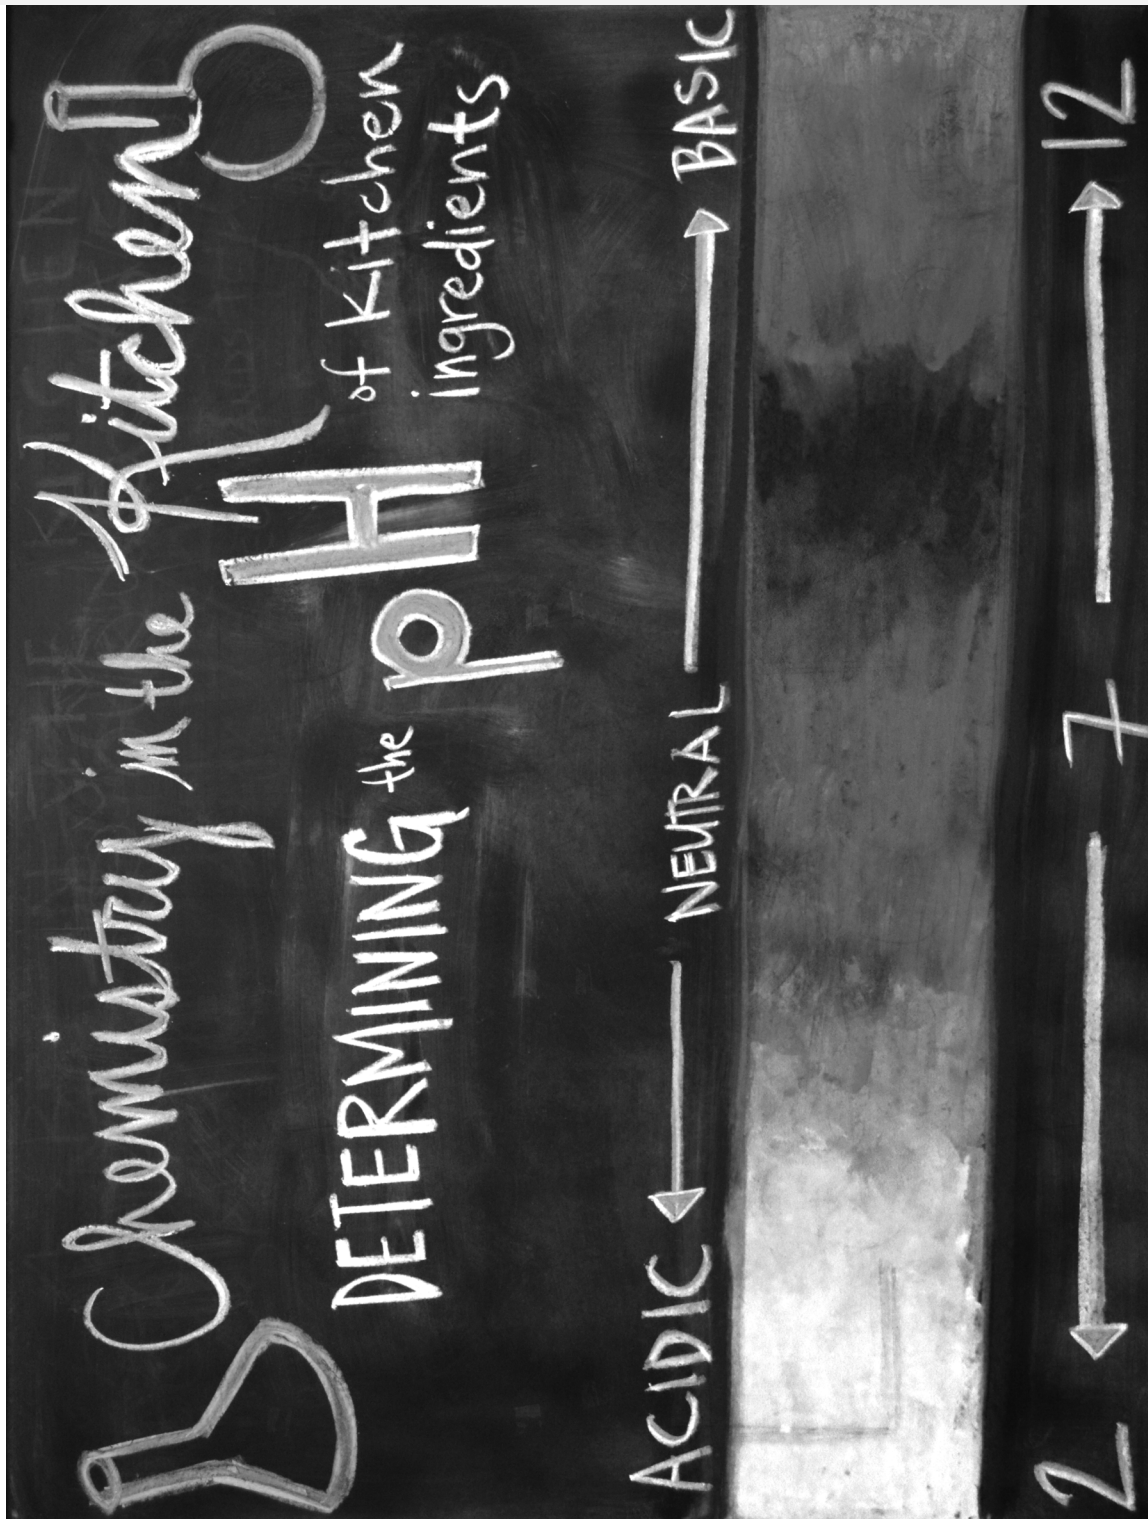 Chemistry in the Kitchen
DETERMINING the pH of Kitchen
ingredients
ACIDIC NEUTRAL BASIC
2 7 12